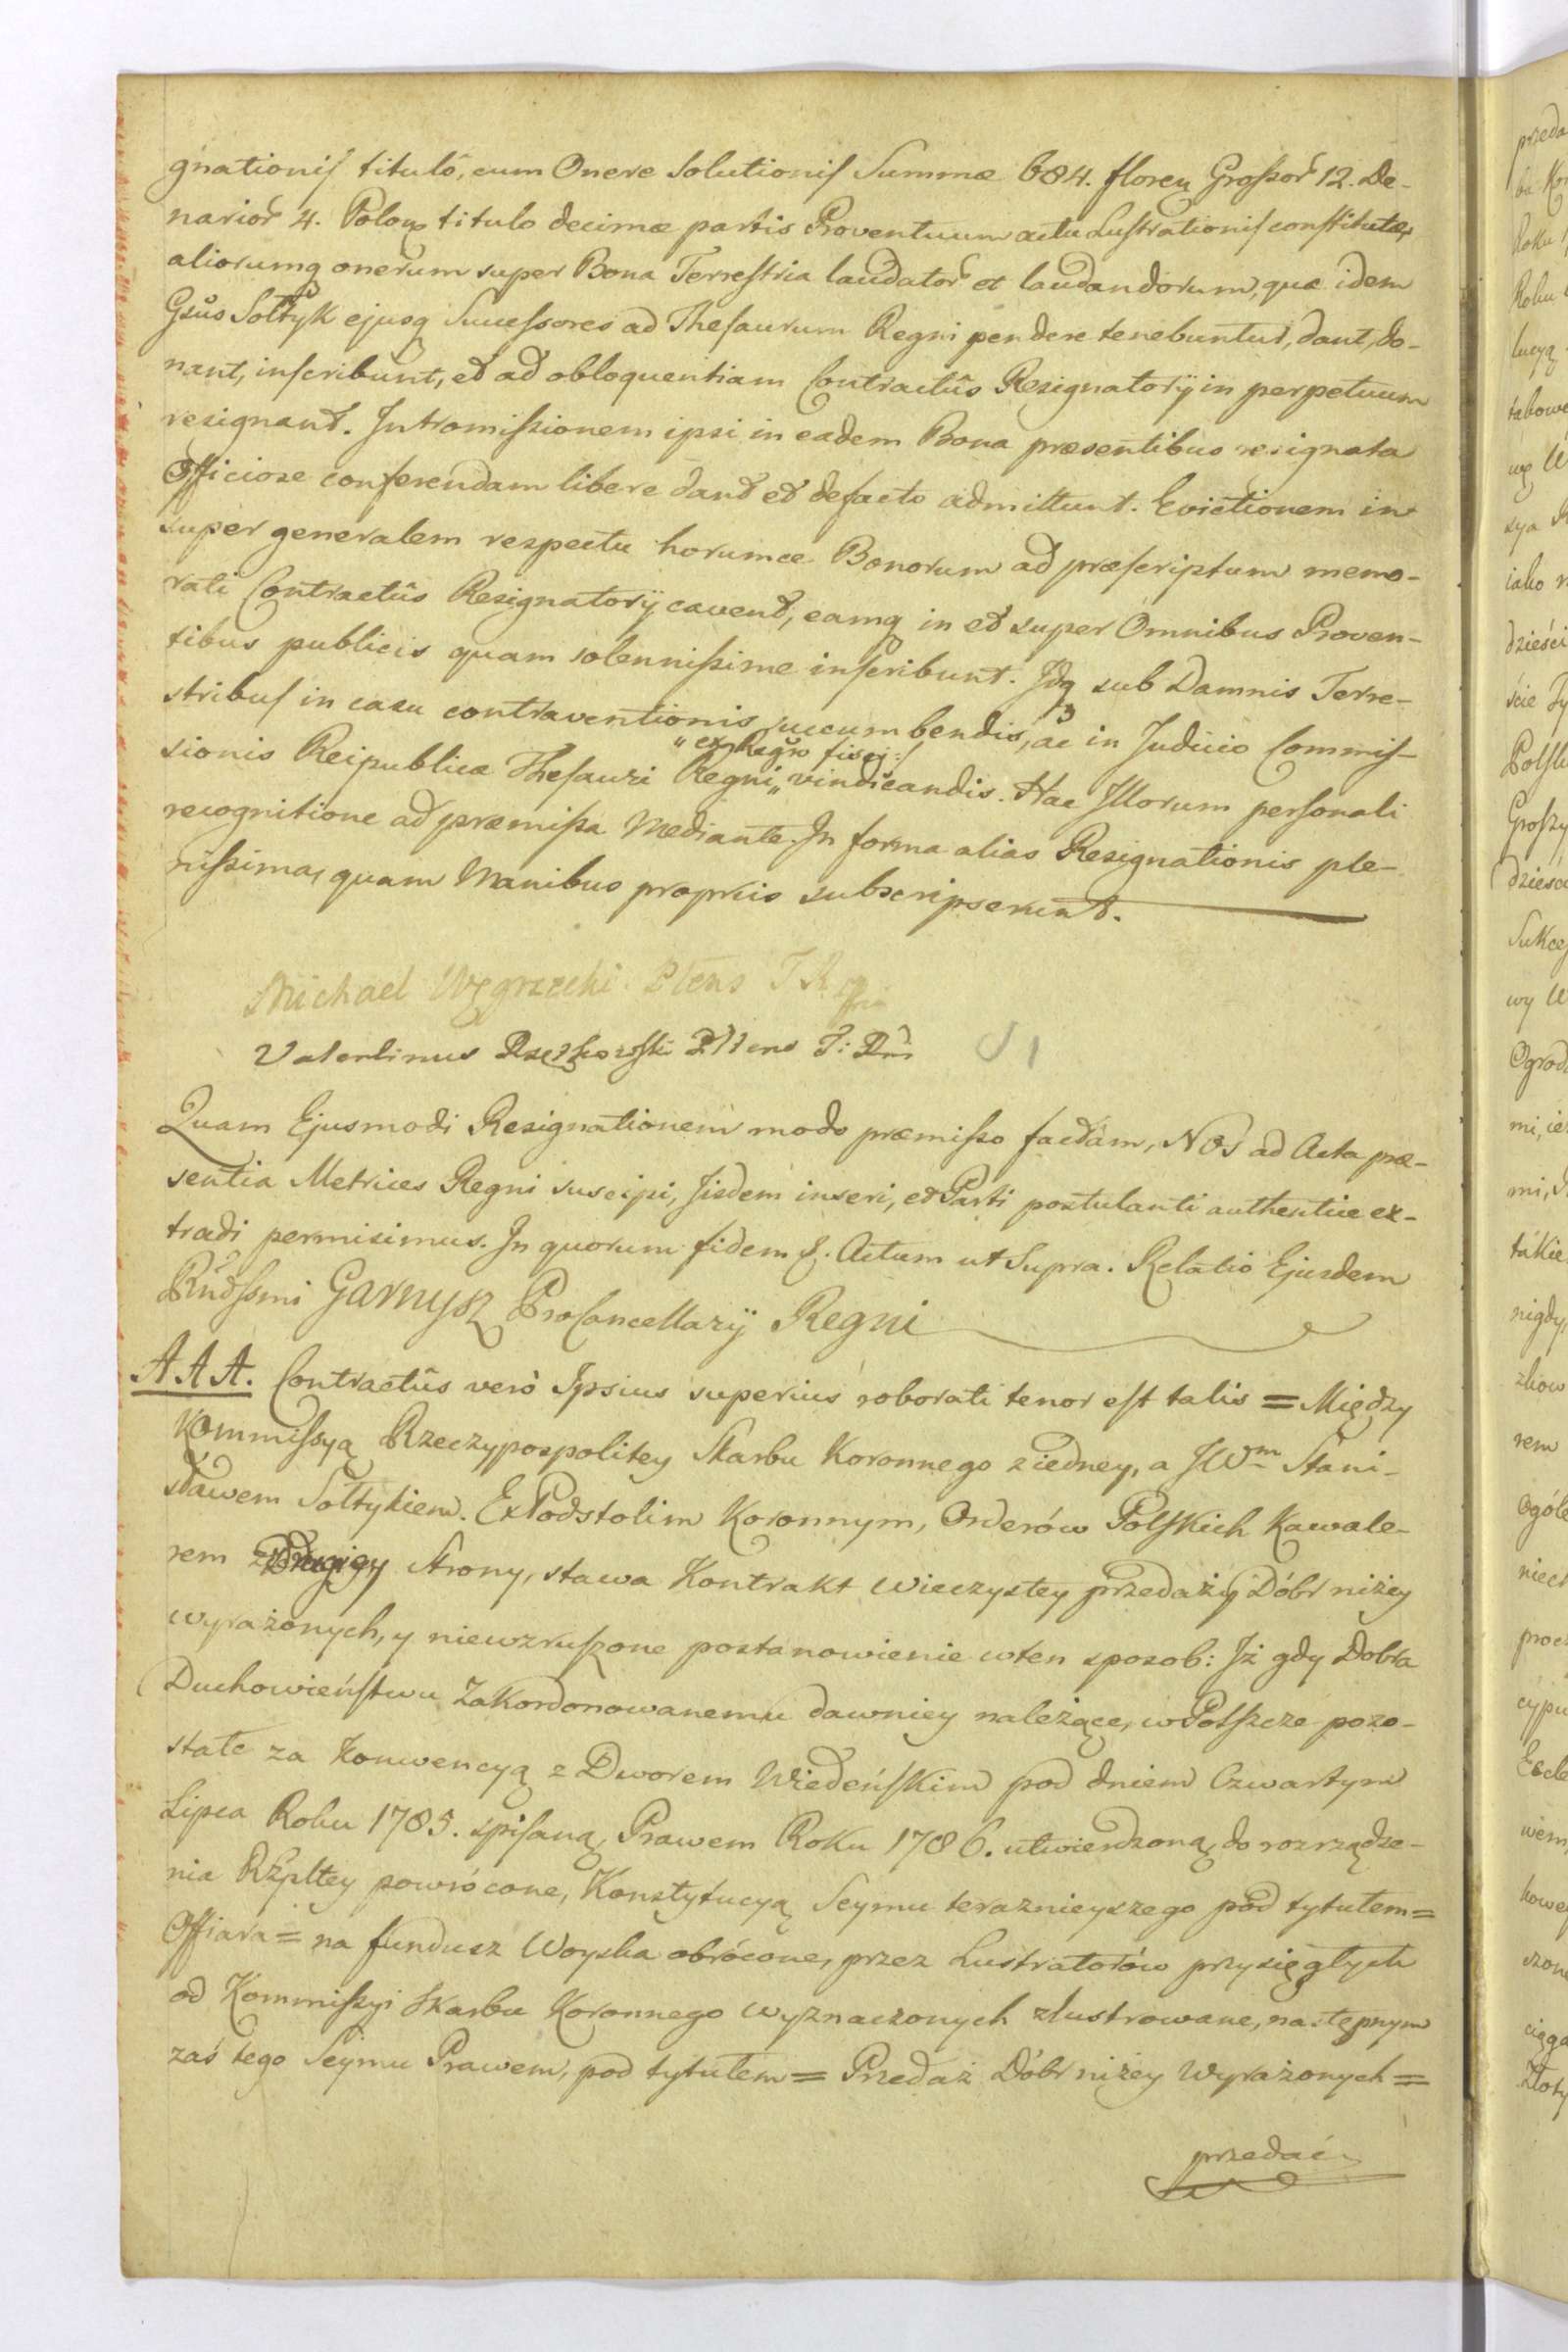 gnationis tituló, cum Onere Solutionis Summæ 684. floren Großor 12. De-
narior 4. Polon titulo decimæ partis Proventuum actu Lustrationis constitutæ,
aliorumq onerum super Bona Terrestria laudator et laudandorum, quæ idem
Gsus Sołtyk ejusq Successores ad Thesaurum Regni pendere tenebuntur, dant, do-
nant, inscribunt, et ad obloquentiam Contractûs Resignatorÿ in perpetuum
resignant. Intromißionem ipsi in eadem Bona præsentibus resignata
Officiose conferendam libere dant et defacto admittunt. Evictionem in
super generalem respectu horumce Bonorum ad præscriptum memo-
rati Contractûs Resignatorÿ cavent, eamq in et super Omnibus Proven-
tibus publicis quam solennißime inscribunt. Idq sub Damnis Terre-
stribus in casu contraventionis succumbendis, ac in Judicio Commis-
sionis Reipublicæ Thesauri Regni „ vindicandis. Hac Illorum personali
„ ex Regro fisci :/
recognitione ad præmißa Mediante. In forma alias Resignationis ple-
nißima, quam Manibus propriis subscripserunt.
Michael Węgrzecki Plens T. R.
Valentinus Rzętkowski Pltens T: R
Quam Ejusmodi Resignationem modo præmißo factam, NOS ad Acta præ-
sentia Metrices Regni suscipi, Iisdem inseri, et Parti postulanti authentice ex-
tradi permisimus. In quorum fidem &. Actum ut Supra. Relatio Ejusdem
Rndssmi Garnysz ProCancellarÿ Regni
AAA. Contractûs verò Ipsius superius roborati tenor est talis = Między
Kommißyą Rzeczypospolitey Skarbu Koronnego z iedney, a JWm Stani-
sławem Sołtykiem. ExPodstolim Koronnym, Orderów Polskich Kawale-
rem z Drugiey strony, stawa Kontrakt Wieczystey przedaży Dóbr niżey
wyrażonych, y niewzrußone postanowienie wten sposob: Iż gdy Dobra
Duchowieństwu Zakordonowanemu dawniey należące, w Polszcze pozo-
stałe za Konwencyą z Dworem Wiedeńskim pod dniem Czwartym
Lipca Roku 1785. spisaną, Prawem Roku 1786. utwierdzoną, do rozrządze-
nia Rzpltey powrócone, Konstytucyą Seymu teraznieyszego pod tytułem =
Offiara = na fundusz Woyska obrócone, przez Lustratorów przysięgłych
od Kommißyi Skarbu Koronnego wyznaczonych zlustrowane, następnym
zaś tego Seymu Prawem, pod tytułem = Przedaż Dóbr niżey wyrażonych =
przedać